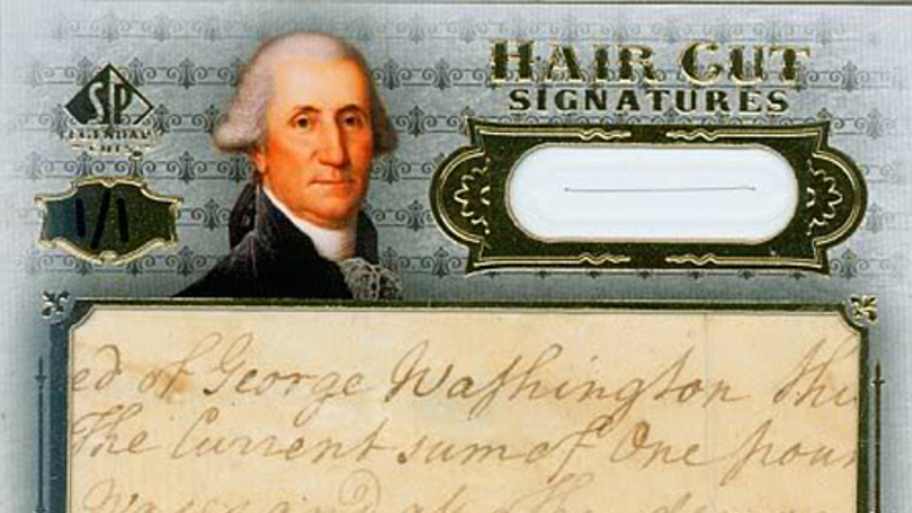 HAIR CUT
SIGNATURES
SP
LEGENDARY
CUTS
1/1
ed of George Waſhington thi
The Current sum of One poun